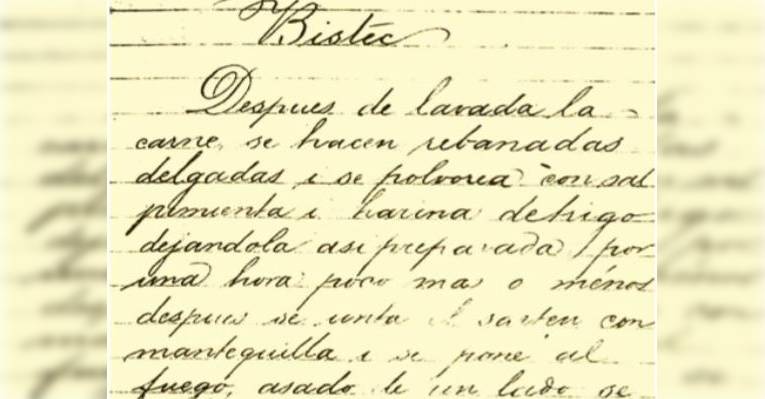 Bistéc
Despues de lavada la
carne, se hacen rebanadas
delgadas i se polvorea con sal
pimienta i harina de trigo
dejandola asi preparada por
una hora poco mas o ménos
despues se unta el sarten con
mantequilla i se pone al
fuego, asado de un lado se